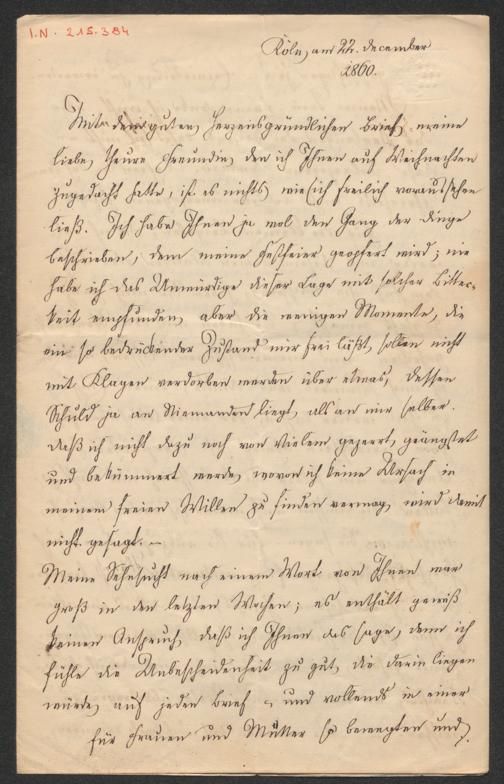 I.N. 215.384
Köln, am 22. December
1860.
Mit dem guten, herzensgründlichen Brief, meine
liebe, theure Freundin, den ich Ihnen auf Weihnachten
zugedacht hatte, ist es nichts, wie sich freilich voraussehen
ließ. Ich habe Ihnen ja wol den Gang der Dinge
beschrieben, dem meine Festfeier geopfert wird; nie
habe ich das Unwürdige dieser Lage mit solcher Bitter-
keit empfunden, aber die wenigen Momente, die
ein so bedrückender Zustand mir frei läßt, sollen nicht
mit Klagen verdorben werden über etwas, dessen
Schuld ja an Niemanden liegt, als an mir selber.
Daß ich nicht dazu noch von Vielem gezerrt, geängstet
und bekümmert werde, wovon ich keine Ursach in
meinem freien Willen zu finden vermag, wird damit
nicht gesagt. –
Meine Sehnsucht nach einem Wort von Ihnen war
groß in den letzten Wochen; es enthält gewiß
keinen Anspruch, daß ich Ihnen das sage, denn ich
fühle die Unbescheidenheit zu gut, die darin liegen
würde, auf jeden Brief – und vollends in einer
für Frauen und Mütter so bewegten und